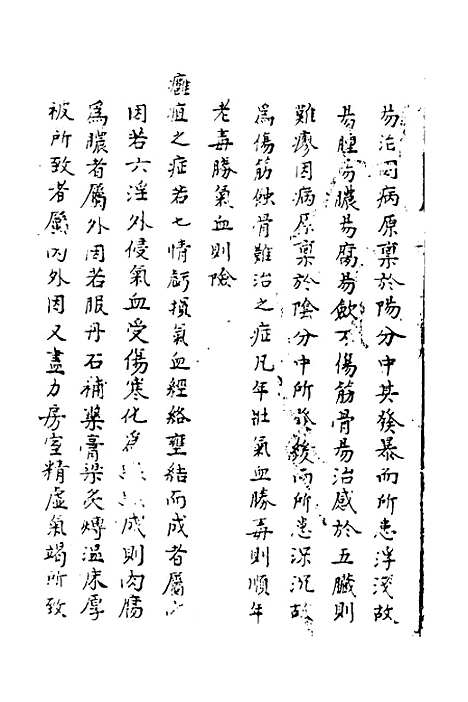 易治因病原稟於陽分中其發暴而所患浮淺故
易腫易膿易腐易斂不傷筋骨易治感於五臟則
難療因病原稟於陰分中所發緩而所患深沉故
為傷筋蝕骨難治之症凡年壯氣血勝毒則順年
老毒勝氣血則險
癰疽之症若七情虧損氣血經絡壅結而成者屬
因若六淫外侵氣血受傷寒化為成則肉腐
為膿者屬外因若服丹石補藥膏粱炙煿溫床厚
被所致者屬內外因又盡力房室精虛氣竭所致